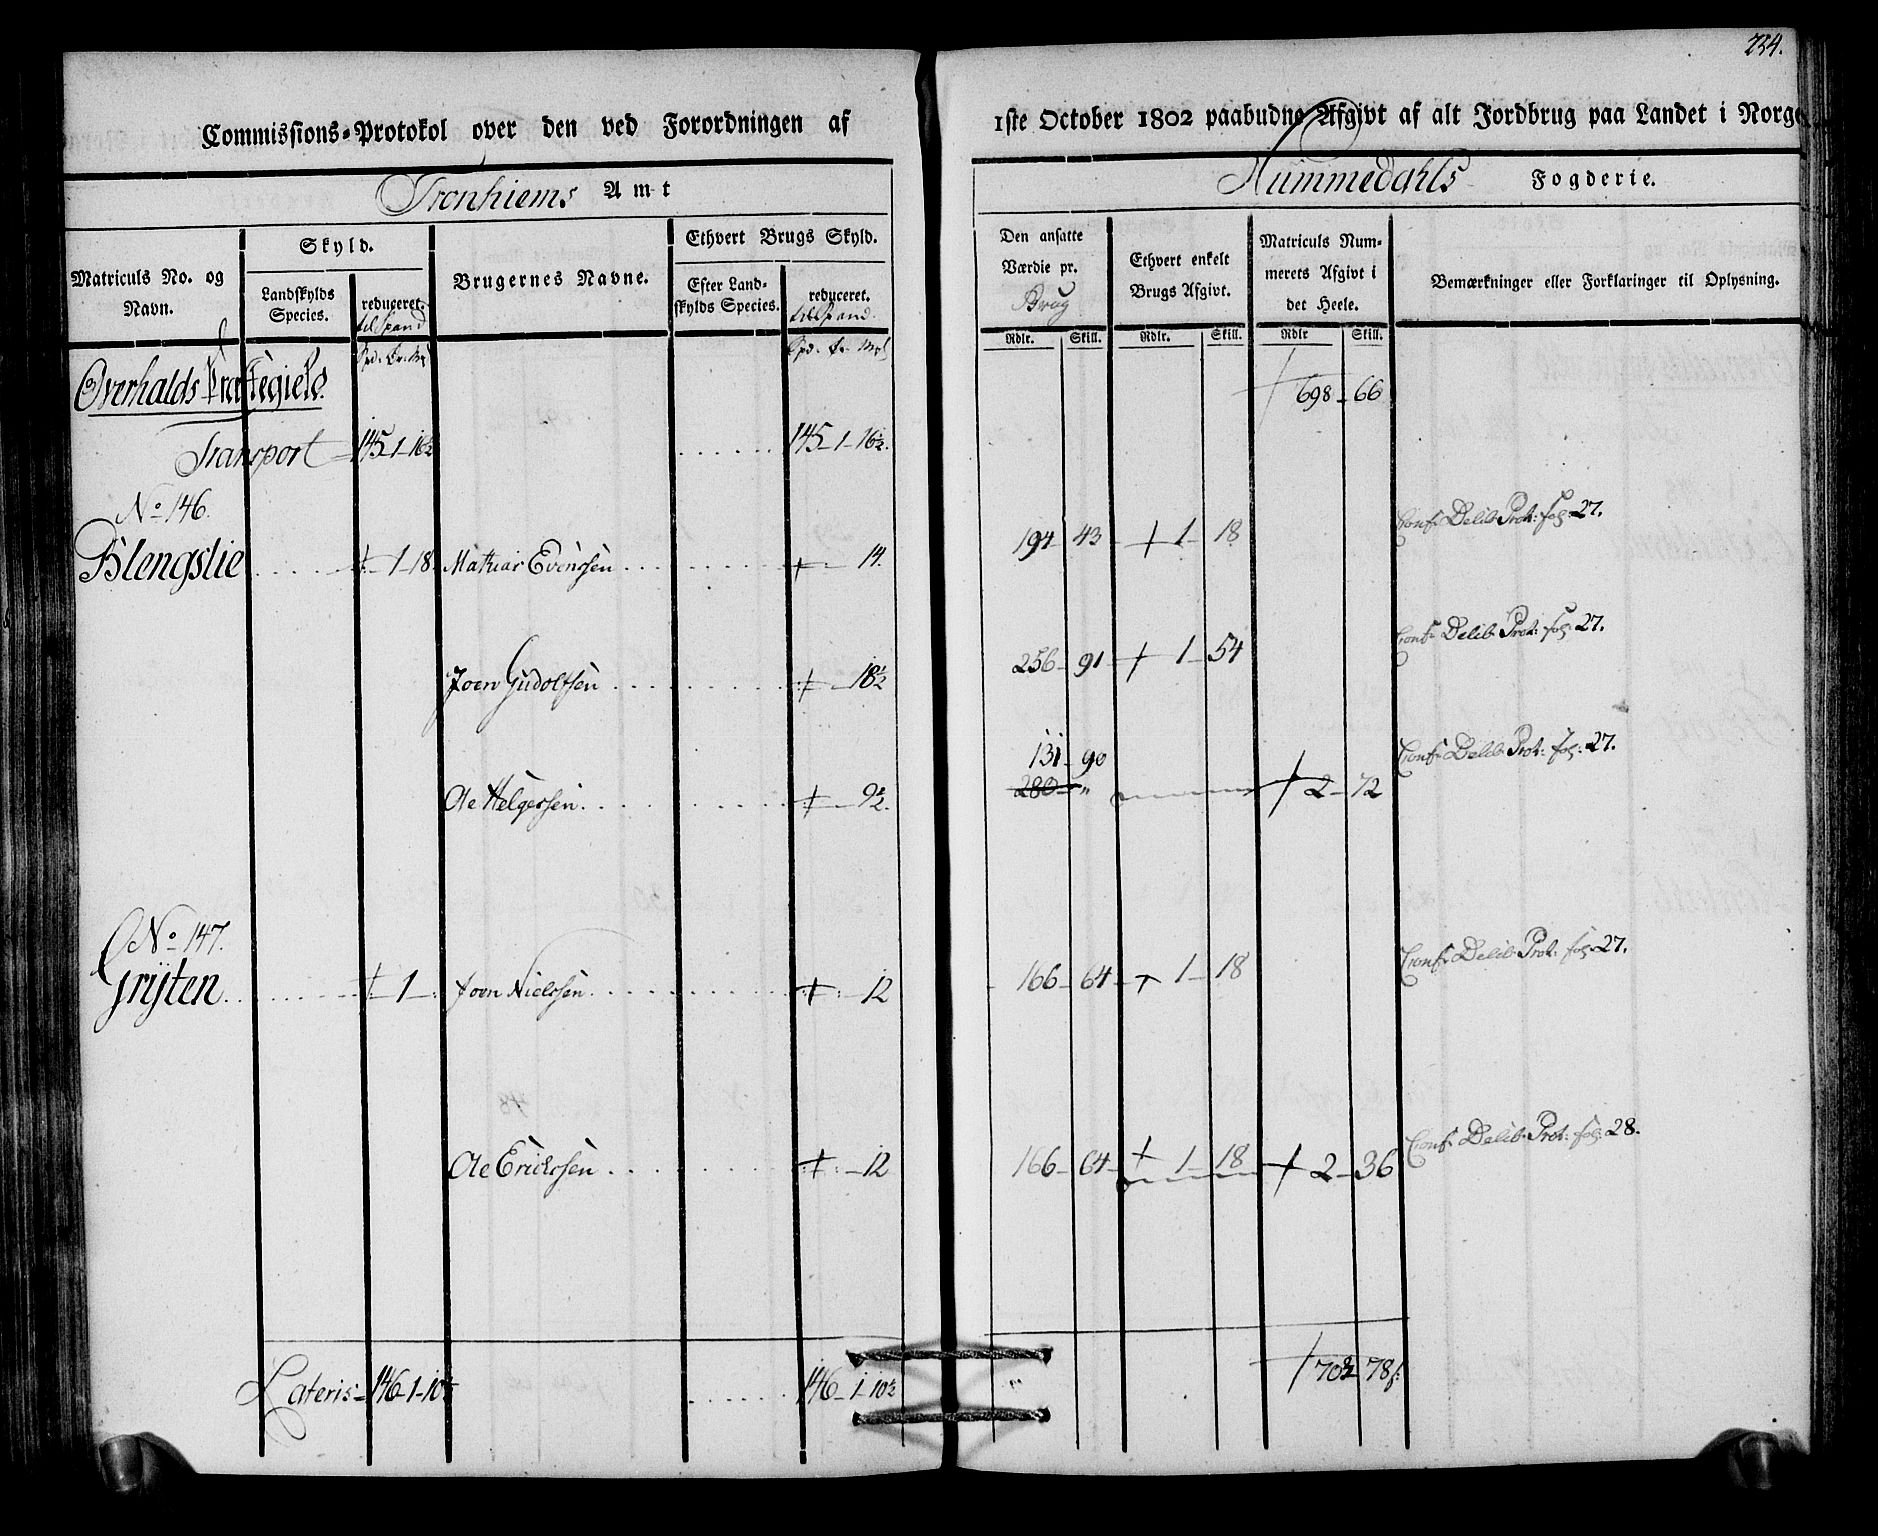 234.
Commissions-Protokol over den ved Forordningen af 1ste October 1802 paabudne Afgivt af alt Jordbrug paa Landet i Norge
Tronhiems Amt
Nummedahls Fogderie.
Matriculs No. og Navn.
Skyld.
Landskylds Species.
reduceret. til Spand
Brugernes Navne.
Ethvert Brugs Skyld.
Efter Landskylds Species.
reduceret. til Spand.
Den ansatte Værdie pr. Brug
Ethvert enkelt Brugs Afgivt.
Matriculs Nummerets Afgivt i det Heele.
Bemærkninger eller Forklaringer til Oplysning.
Rdlr. Skill. Rdlr. Skill. Rdlr Skill.
Overhalds Præstegield. 698 - 66
Transport 145-1-16½ 145-1-16½.
No 146.
Blengslie - 1-18. Mathias Evensen - 14. 194- 43 1- 18 Conf: Delib: Prot: fol: 27.
Joen Gudolfsen - 18½ 256- 91 1- 54 Conf: Delib: Prot: fol: 27.
131- 90 Conf: Delib: Prot: fol: 27.
Ole Helgessen - 9½. 280- „ 2- 72
No 147.
Grÿten - 1 - Joen Nielssen - 12 166- 64 1- 18 Conf: Delib: Prot: fol: 27.
Ole Erichssen - 12 166- 64 1- 18 2- 36 Conf: Delib: Prot: fol: 28.
Lateris 146-1-10½ 146-1-10½ 703- 78